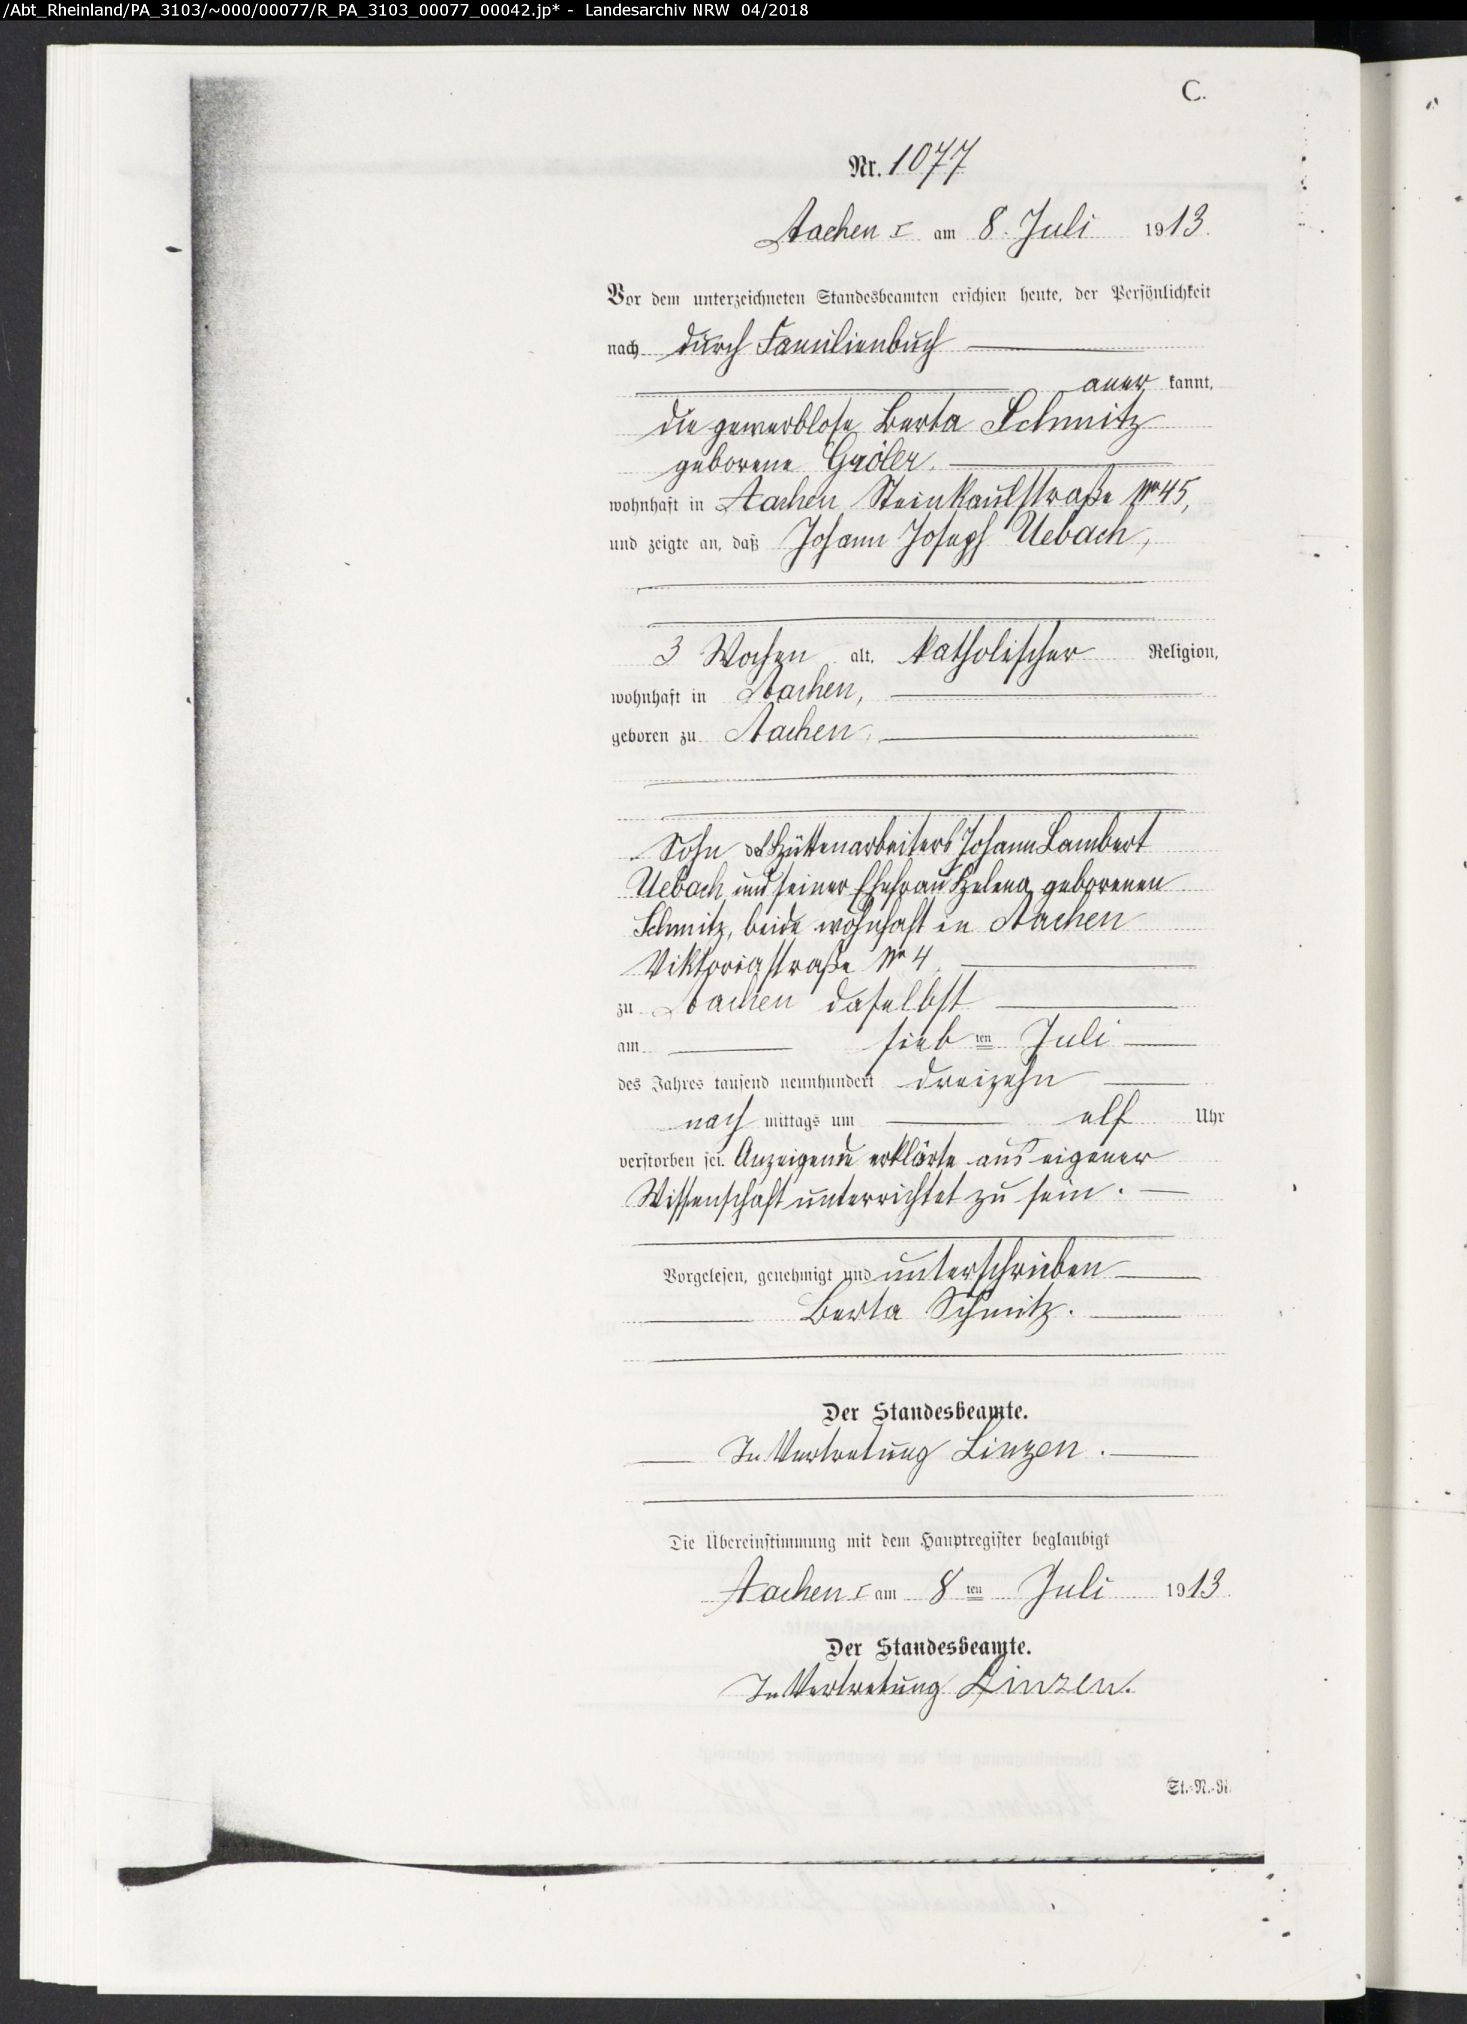 /Abt_Rheinland/PA_3103/~000/00077/R_PA_3103_00077_00042.jp* - Landesarchiv NRW 04/2018
C.
Nr. 1077
Aachen I am 8. Juli 1913.
Vor dem unterzeichneten Standesbeamten erschien heute, der Persönlichkeit
nach durch Familienbuch
aner kannt,
die gewerblose Berta Schmitz
geborene Gröler.
wohnhaft in Aachen Steinkaulstraße No 45,
und zeigte an, daß Johann Joseph Uebach,
3 Wochen alt, katholischer Religion,
wohnhaft in Aachen,
geboren zu Aachen,
Sohn des Hüttenarbeiters Johann Lambert
Uebach und seiner Ehefrau Helena geborenen
Schmitz, beide wohnhaft in Aachen
Viktoriastraße No 4
zu Aachen daselbst
am sieb ten Juli
des Jahres tausend neunhundert dreizehn
nach mittags um elf Uhr
verstorben sei. Anzeigende erklärte aus eigener
Wissenschaft unterrichtet zu sein.
Vorgelesen, genehmigt und unterschrieben
Berta Schmitz.
Der Standesbeamte.
In Vertretung Linzen.
Die Übereinstimmung mit dem Hauptregister beglaubigt
Aachen I am 8 ten Juli 1913
Der Standesbeamte.
In Vertretung Linzen.
St.-N.-R.